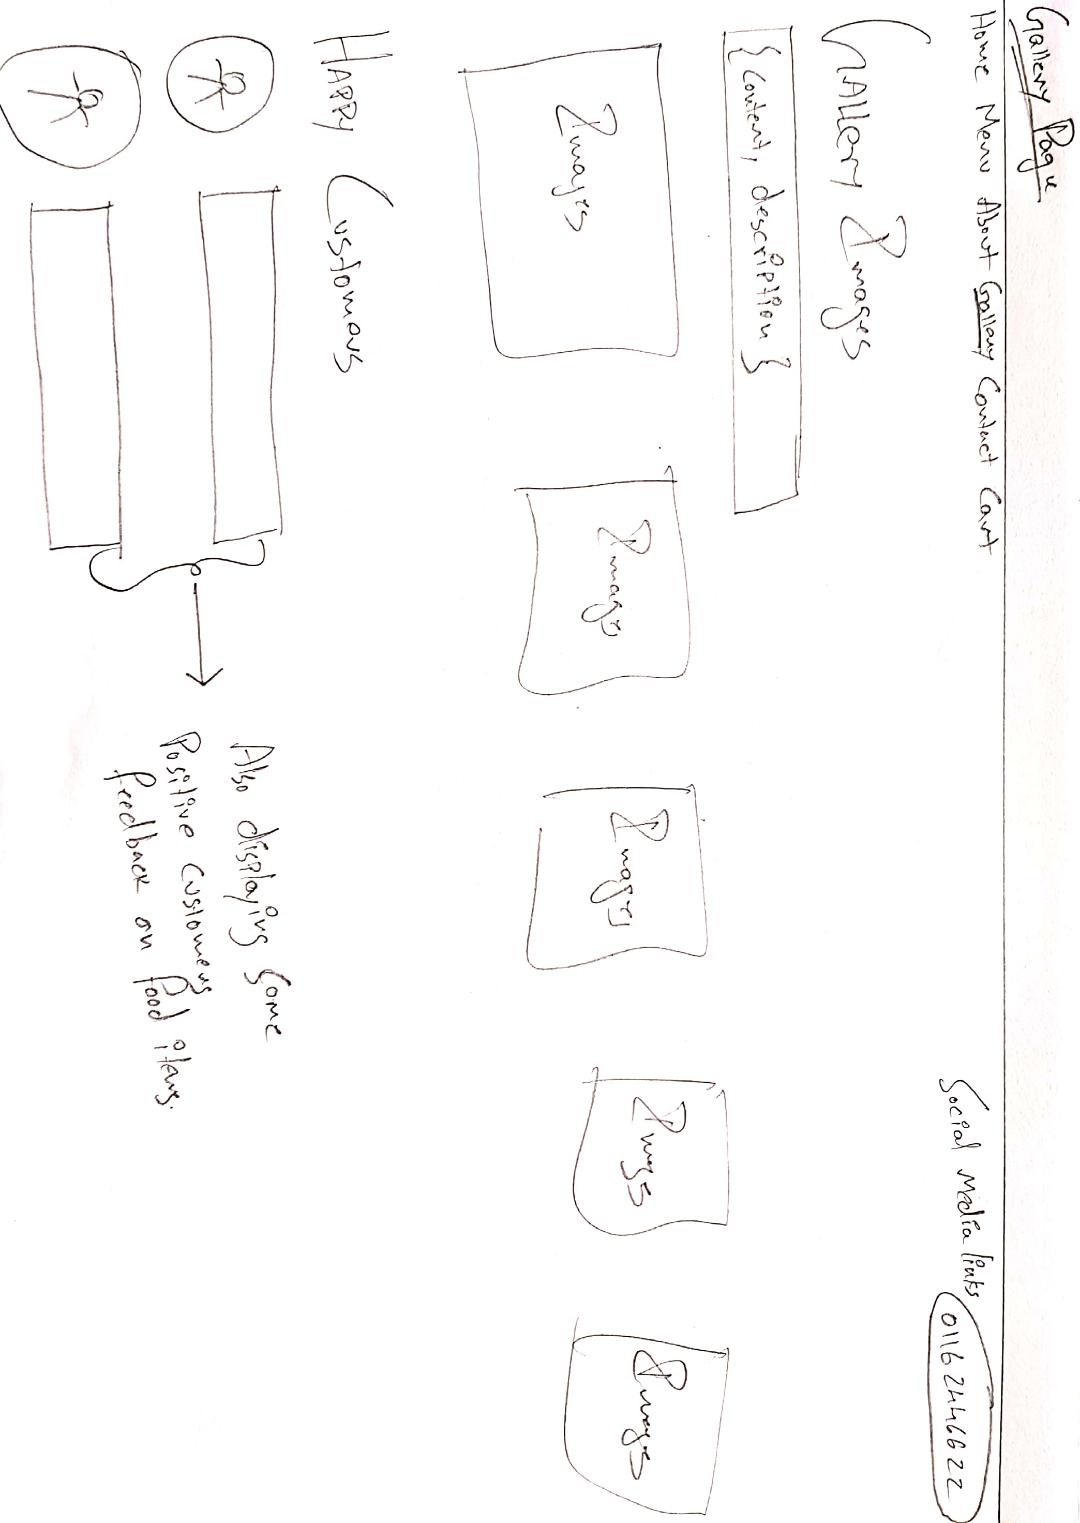 Gallery Page
Home Menu About Gallery Contact Cart
Social Media links 01162446622
GAllery Images
{ Content, description }
Images Images Images Images Images
HAPPy Customers
Also displaying some
Positive customers
feedback on food items.